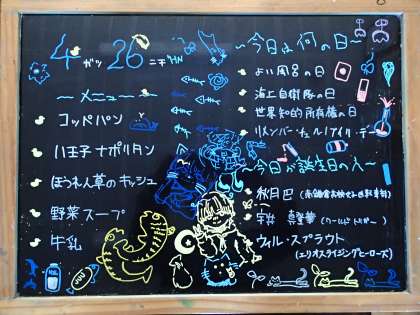 4ガツ26ニチ
～メニュー～
コッペパン
八王子ナポリタン
ほうれん草のキッシュ
野菜スープ
牛乳
～今日は何の日～
よい風呂の日
海上自衛隊の日
世界知的所有権の日
リメンバー・チェルノブイリ・デー
～今日が誕生日の人～
秋月巴
宇井
ウィル・スプラウト
(エリオスライジングヒーローズ)